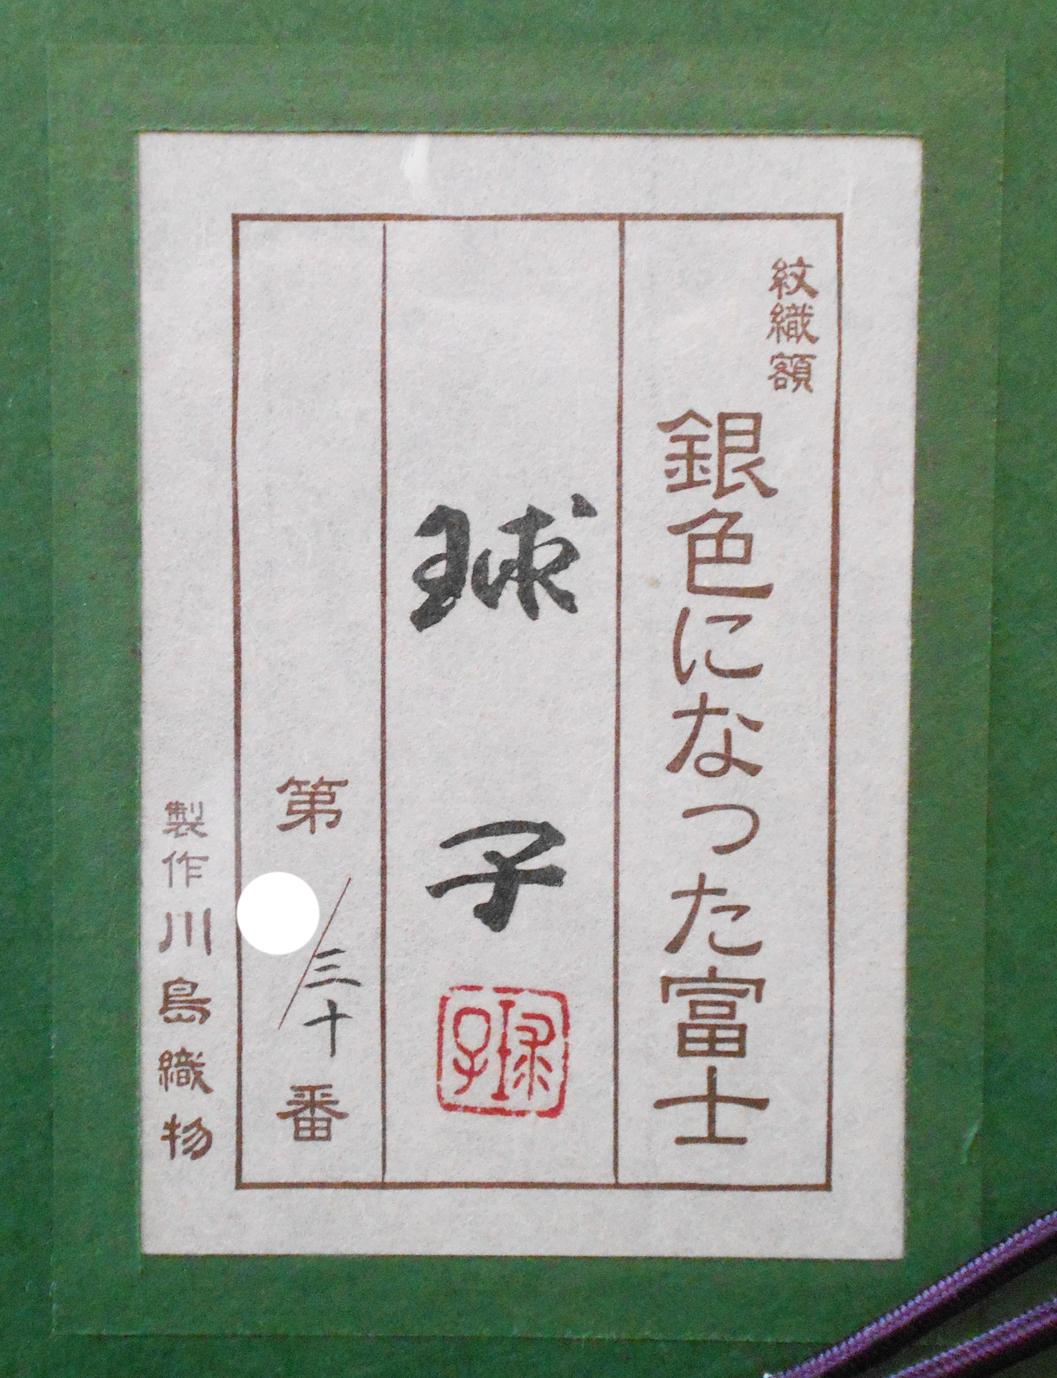 紋織額
銀色になった富士
球子
球子
第 /三十番
製作川島織物